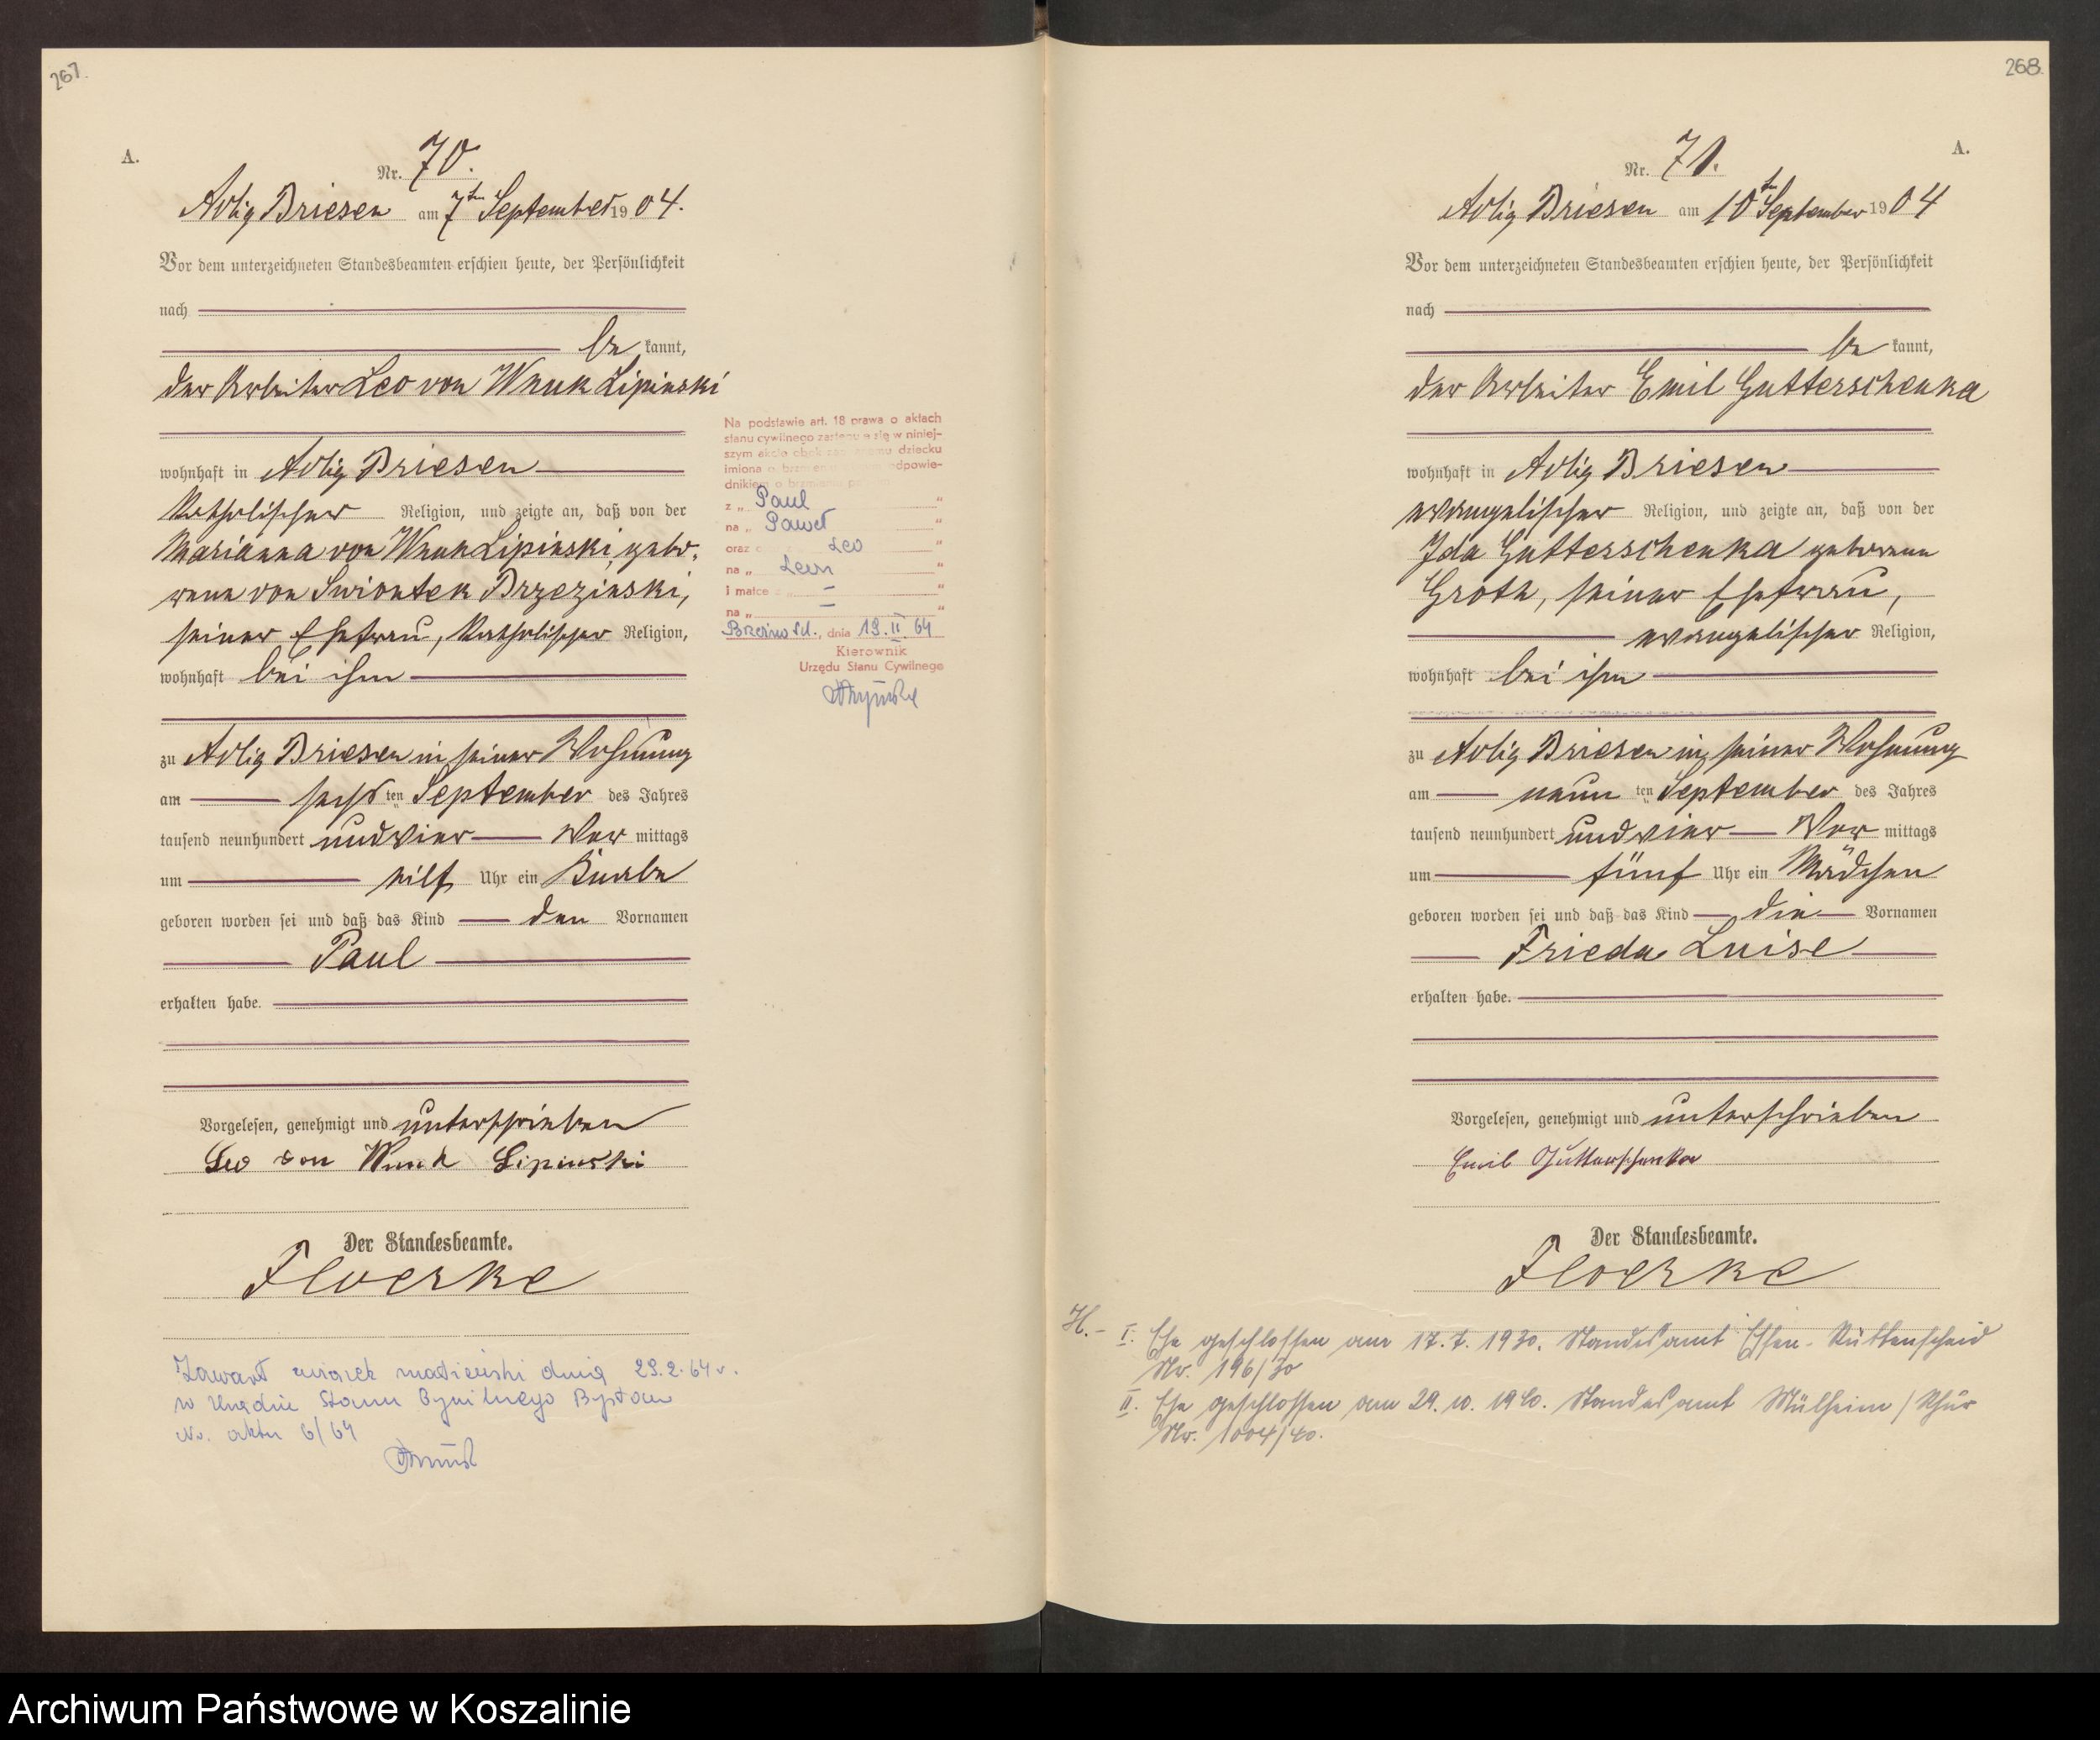 267.
A.
Nr. 70.
Adlig Briesen am 7ten September 1904.
Vor dem unterzeichneten Standesbeamten erschien heute, der Persönlichkeit
nach
be kannt,
der Arbeiter Leo von Wnuk Lipinski
wohnhaft in Adlig Briesen
katholischer Religion, und zeigte an, daß von der
Marianna von Wnuk Lipinski, gebo-
rene von Swiontek Brzezinski,
seiner Ehefrau, katholischer Religion,
wohnhaft bei ihm
zu Adlig Briesen in seiner Wohnung
am sechs ten September des Jahres
tausend neunhundert und vier Vor mittags
um eilf Uhr ein Knabe
geboren worden sei und daß das Kind den Vornamen
Paul
erhalten habe.
Vorgelesen, genehmigt und unterschrieben
Leo von Wnuk Lipinski
Der Standesbeamte.
Floerke
Zawarł związek małżeński dnia 29.2.64 r.
w Urzędzie Stanu Cywilnego Bytów
No. aktu 6/64
Na podstawie art. 18 prawa o aktach
stanu cywilnego zastępuje się w niniej-
szym akcie obok dziecku
imiona o odpowie-
dnikiem o brzmieniu
z „ Paul "
na „ Paweł "
oraz Leo "
na „ Leon "
i matce „ — "
na „ — "
dnia 19.II.64
Kierownik
Urzędu Stanu Cywilnego
268.
A.
Nr. 71.
Adlig Briesen am 10ten September 1904
Vor dem unterzeichneten Standesbeamten erschien heute, der Persönlichkeit
nach
be kannt,
der Arbeiter Emil Gutterschenka
wohnhaft in Adlig Briesen
evangelischer Religion, und zeigte an, daß von der
Ida Gutterschenka geborene
Groth, seiner Ehefrau,
evangelischer Religion,
wohnhaft bei ihm
zu Adlig Briesen in seiner Wohnung
am neun ten September des Jahres
tausend neunhundert und vier Vor mittags
um fünf Uhr ein Mädchen
geboren worden sei und daß das Kind die Vornamen
Frieda Luise
erhalten habe.
Vorgelesen, genehmigt und unterschrieben
Emil Gutterschenka
Der Standesbeamte.
Floerke
H. - I. Ehe geschlossen am 17.7.1930. Standesamt Essen-Rüttenscheid
Nr. 196/30
II. Ehe geschlossen am 29.10.1940. Standesamt Mülheim/Ruhr
Nr. 1004/40.
Archiwum Państwowe w Koszalinie